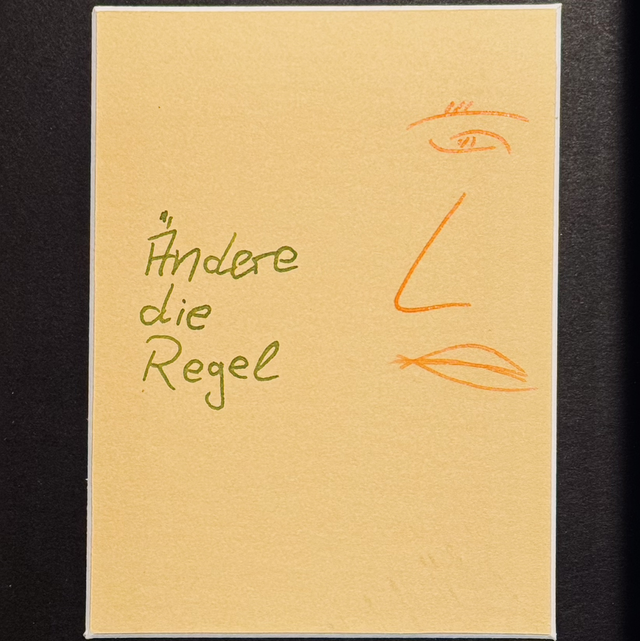 Ändere
die
Regel